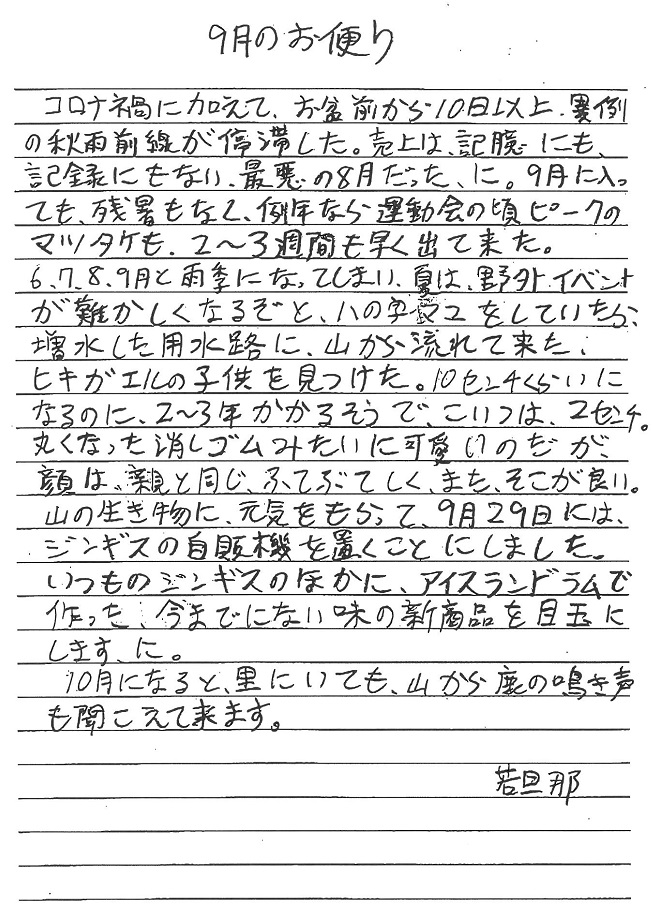 9月のお便り
コロナ禍に加えて、お盆前から10日以上、異例
の秋雨前線が停滞した。売上は、記憶にも、
記録にもない、最悪の8月だった、に。9月に入っ
ても、残暑もなく、例年なら運動会の頃ピークの
マツタケも、2〜3週間も早く出て来た。
6、7、8、9月と雨季になってしまい、夏は、野外イベント
が難かしくなるぞと、ハの字マユをしていたら、
増水した用水路に、山から流れて来た、
ヒキガエルの子供を見つけた。10センチくらいに
なるのに、2〜3年かかるそうで、こいつは、2センチ。
丸くなった消しゴムみたいに可愛いのだが、
顔は、親と同じ、ふてぶてしく、また、そこが良い。
山の生き物に、元気をもらって、9月29日には、
ジンギスの自販機を置くことにしました。
いつものジンギスのほかに、アイスランドラムで
作った、今までにない味の新商品を目玉に
します、に。
10月になると、里にいても、山から鹿の鳴き声
も聞こえて来ます。
若旦那